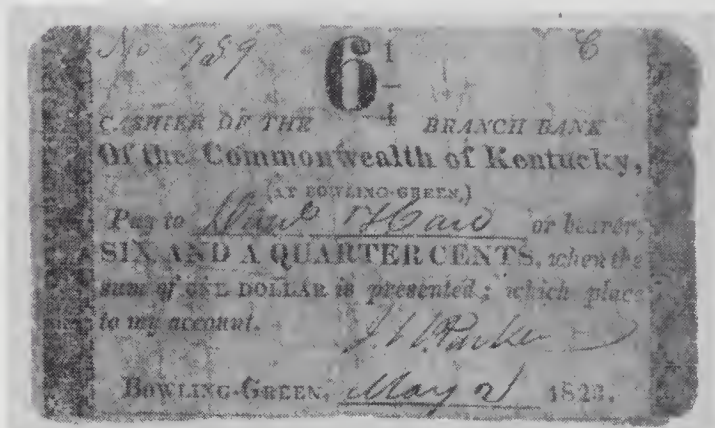 No 789 6 1/4 C
CASHIER OF THE BRANCH BANK
Of the Commonwealth of Kentucky,
(AT BOWLING-GREEN,)
Pay to or bearer,
SIX AND A QUARTER CENTS, when the
sum of ONE DOLLAR is presented; which place
to my account.
Parker
BOWLING-GREEN, May 2 1823.